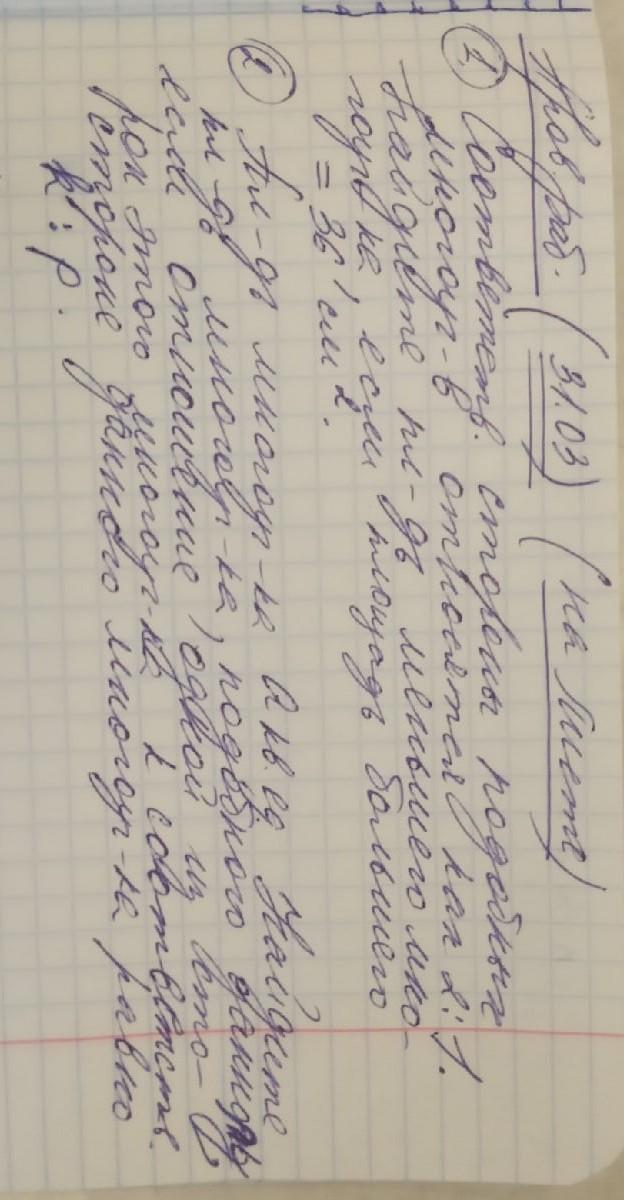 Пров. раб. (31.03) (на листе)
① Соответств. стороны подобных
многоуг-в относятся как 2:1.
Найдите пл-дь меньшего мно-
гоуг-ка, если площадь большего
= 36 см2.
② Пл-дь многоуг-ка Q кв. ед. Найдите
пл-дь многоуг-ка, подобного данному
если отношение одной из сто-
рон этого многоуг-ка к соответств.
стороне данного многоуг-ка равно
k : p.